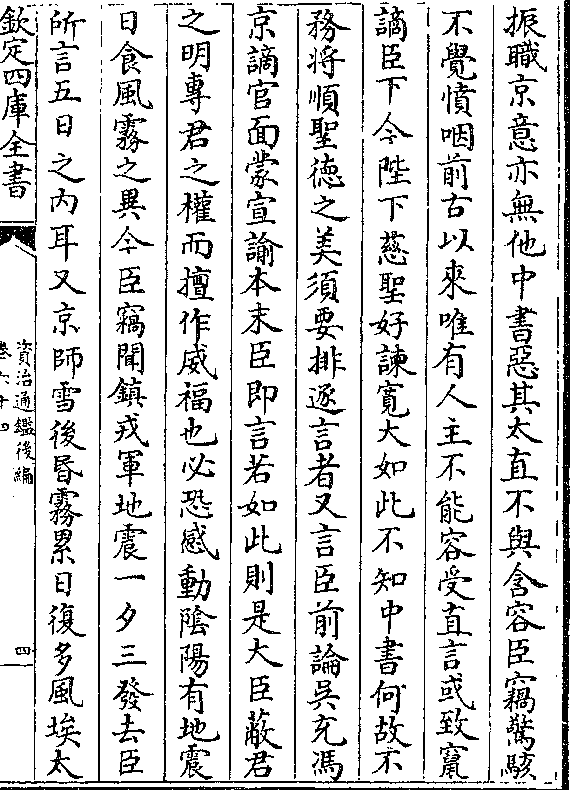 振職京意亦無他中書惡其太直不與含容臣竊驚駭
不覺憤咽前古以來唯有人主不能容受直言或致竄
謫臣下今陛下慈聖好諫寛大如此不知中書何故不
務將順聖徳之美須要排逐言者又言臣前論吳充馮
京謫官面蒙宣諭本末臣即言若如此則是大臣蔽君
之明專君之權而擅作威福也必恐感動陰陽有地震
日食風霧之異今臣竊聞鎮戎軍地震一夕三發去臣
所言五日之内耳又京師雪後昏霧累日復多風埃太
欽定四庫全書
資治通鑑後編
卷六十四
四